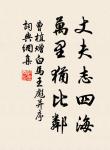 丈夫志四海
萬里猶比鄰
曹植贈白馬王彪并序
詞典網集